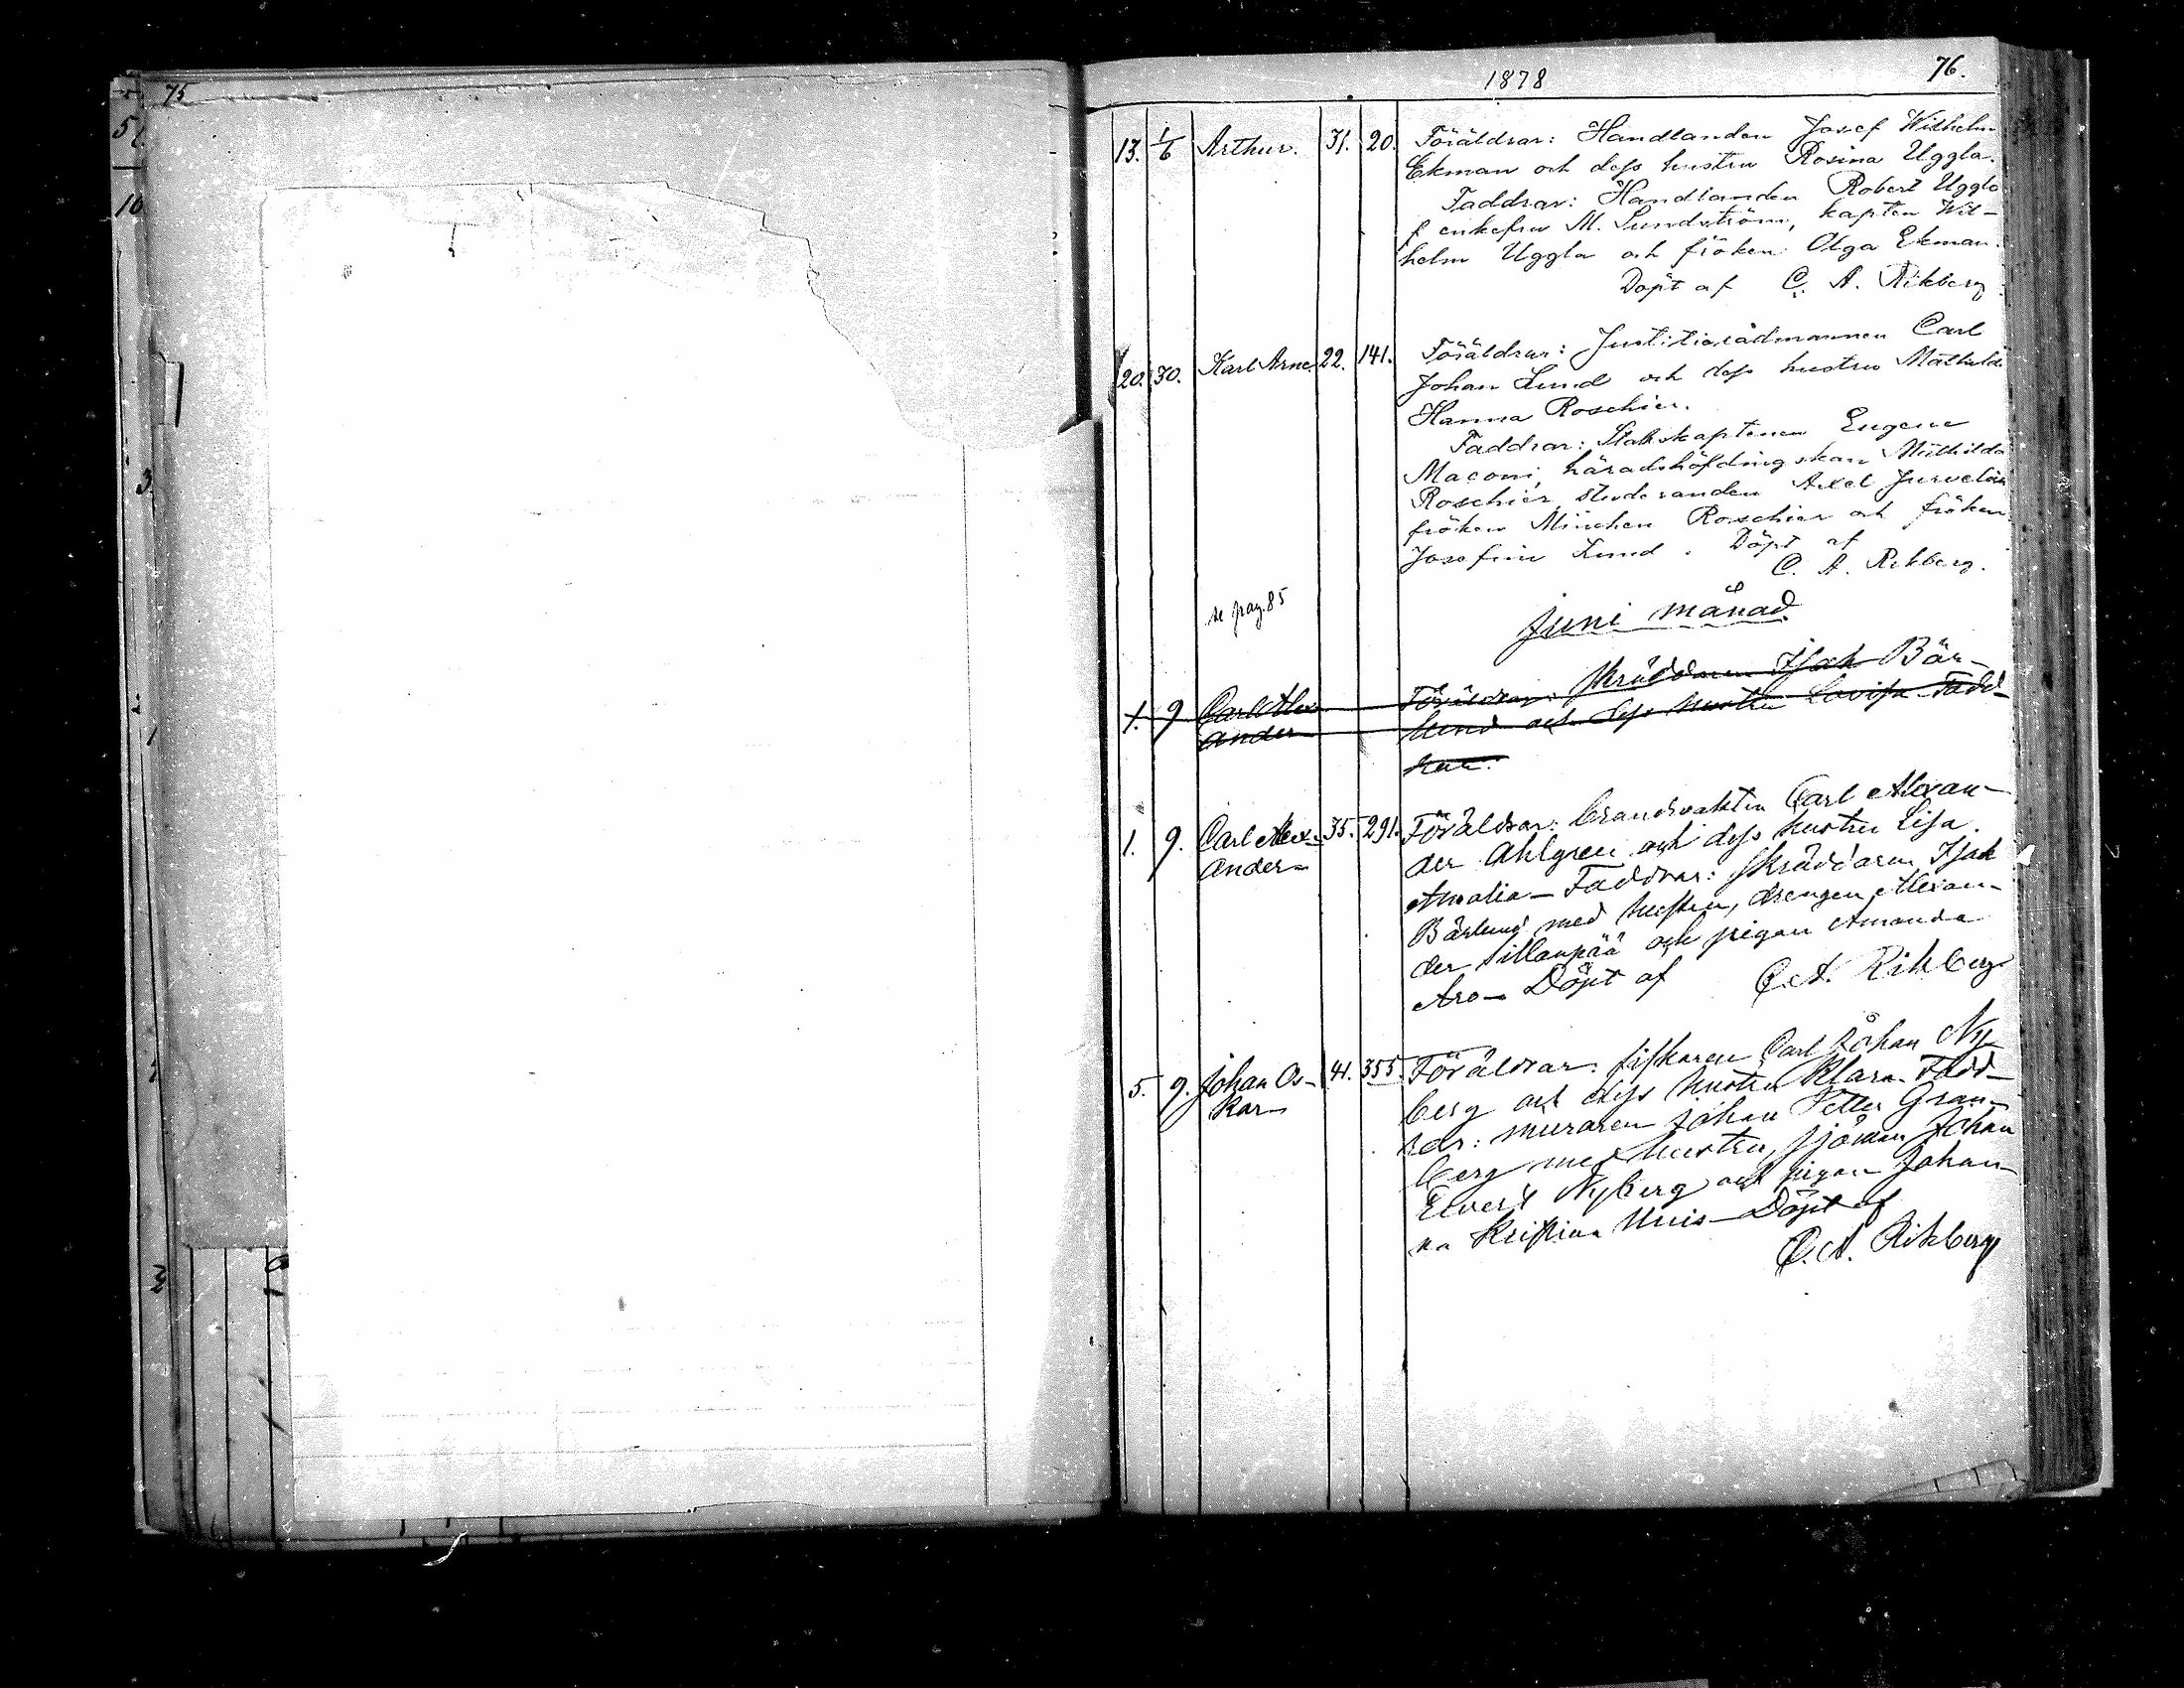 75
76.
1878
13. 1/6 Arthur. 31. 20. Föräldrar: Handlanden Josef Wilhelm
Ekman och dess hustru Rosina Uggla.
Faddrar: Handlanden Robert Uggla
enkefru M. Sundström, kapten Wil-
helm Uggla och fröken Olga Ekman.
Döpt af C. A. Rikberg.
20. 30. Karl Arne 22. 141. Föräldrar: Justitierådmannen Carl
Johan Lund och dess hustru Mathilda
Hanna Roschier.
Faddrar: Stabskaptenen Eugene
Maconi, häradshöfdingskan Mathilda
Roschier, studeranden Axel
fröken Minchen Roschier och fröken
Josefine Lund. Döpt af
C. A. Rikberg.
se pag. 85
Juni månad
1. 9 Carl Alex- Föräldrar: Skräddaren Isak Bär-
ander lund och dess hustru Lovisa Fadd-
rar:
1. 9. Carl Alex- 35. 291. Föräldrar: brandvakten Carl Alexan-
ander der Ahlgren och dess hustru Lisa
Amalia – Faddrar: Skräddaren Isak
Bärlund med hustru, drengen Alexan-
der Sillanpää och pigan Amanda
Aro – Döpt af C. A. Rikberg
5. 9. Johan Os- 41. 355. Föräldrar: fiskaren Carl Johan Ny-
kar berg och dess hustru Klara. Fadd-
rar: muraren Johan Petter Gran-
berg med hustru, sjöman Johan
Evert Nyberg och pigan Johan-
na Kristina – Döpt af
C. A. Rikberg